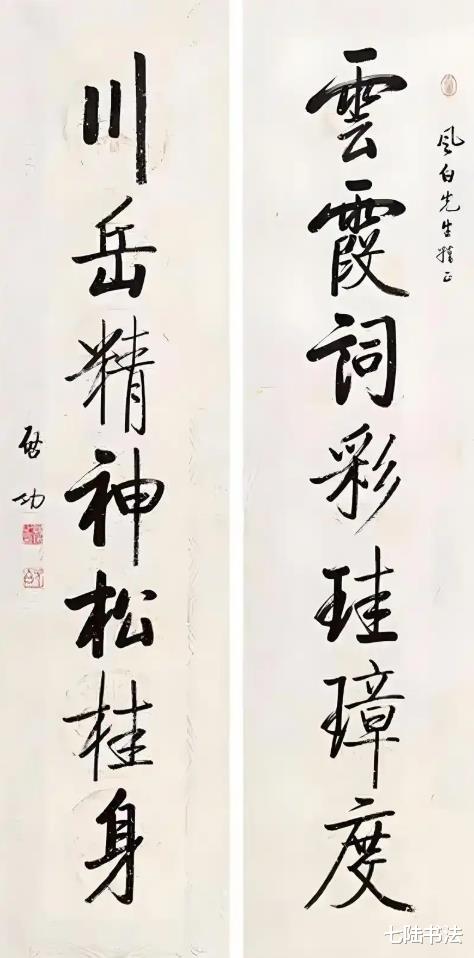 風白先生精正
雲霞詞彩珪璋度
川岳精神松桂身
啓功
七陆书法